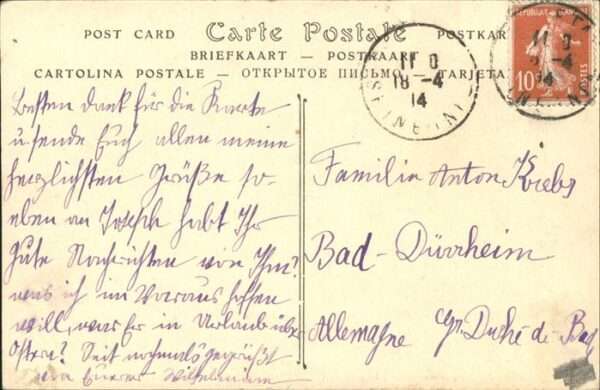 POST CARD Carte Postale POSTKAR
BRIEFKAART — POSTKAART
CARTOLINA POSTALE — ОТКРЫТОЕ ПИСЬМО — TARJETA
11 0
18-4
14
REPUBLIQUE FRANÇAISE
10
POSTES
Besten Dank für die Karte
u. sende Euch allen meine
herzlichsten Grüße so-
eben an Joseph habt Ihr
gute Nachrichten von Ihm?
was ich im Voraus hoffen
will, war Er in Urlaub über
Ostern? Seit nochmals gegrüßt
von Eurer
Familie Anton Krebs
Bad-Dürrheim
Allemagne Gr. Duché de Bad